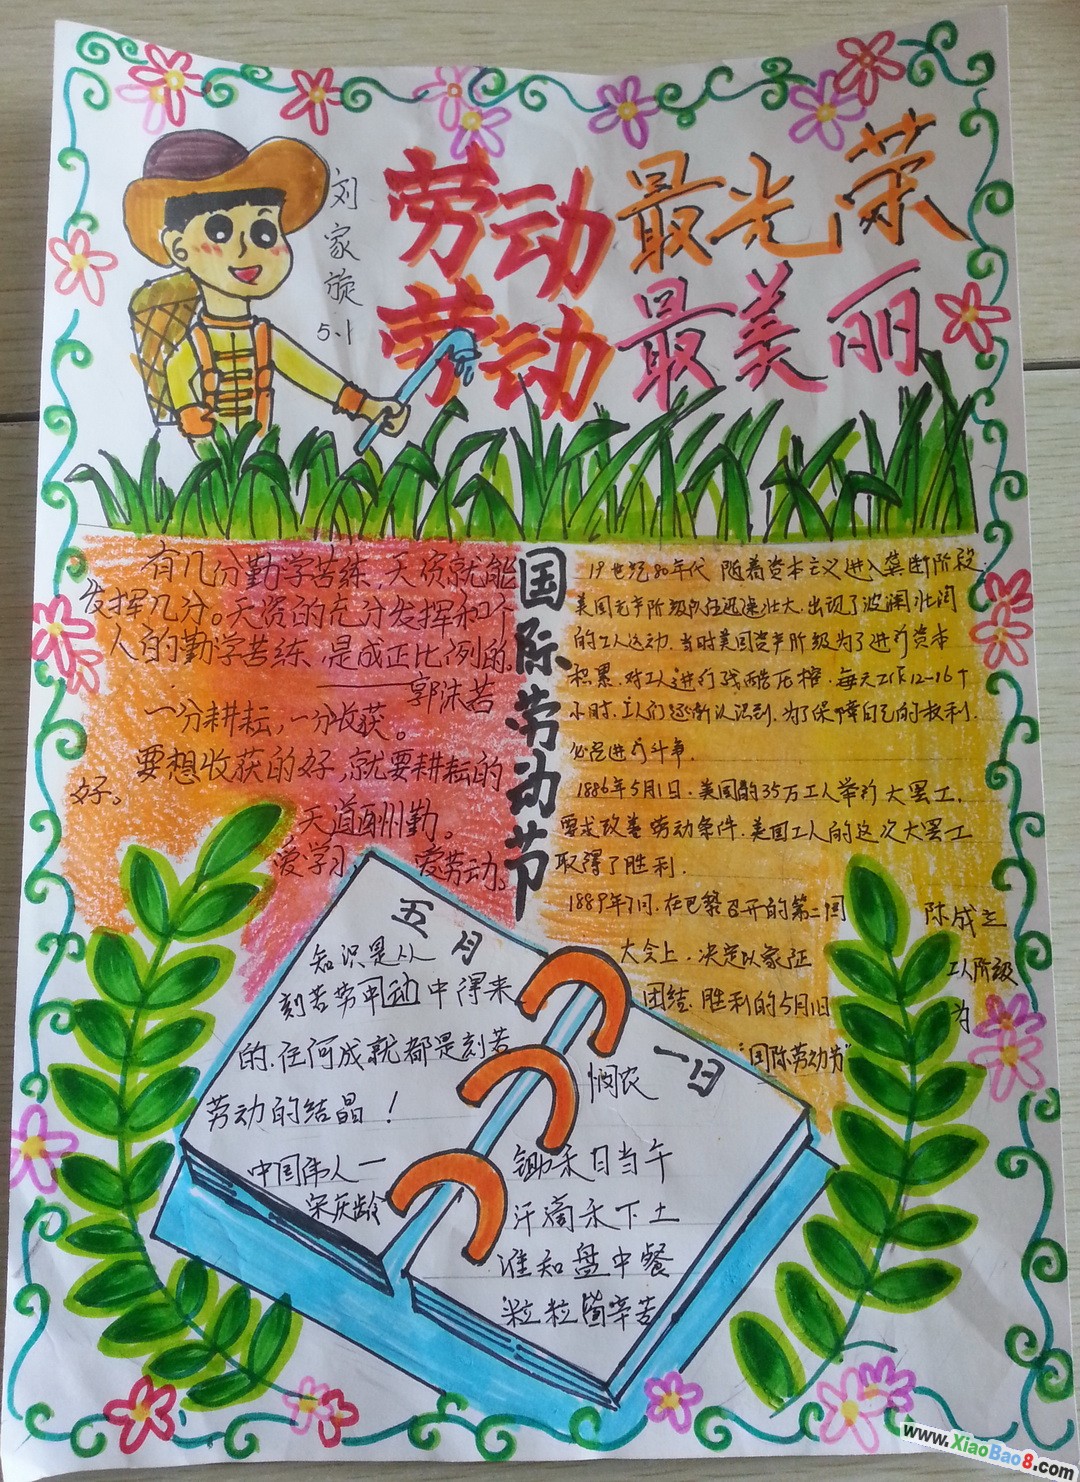 刘家旋
5.1
劳动最光荣
劳动最美丽
国际劳动节
有几份勤学苦练,天资就能
发挥几分。天资的充分发挥和个
人的勤学苦练,是成正比例的
——郭沫若
一分耕耘,一分收获。
要想收获的好,就要耕耘的
好。
天道酬勤。
爱学习, 爱劳动。
19世纪80年代 随着资本主义进入垄断阶段.
美国无产阶级队伍迅速壮大.出现了波澜壮阔
的工人运动.当时美国资产阶级为了进行资本
积累.对工人进行残酷压榨.每天工作12-16个
小时.工人们逐渐认识到.为了保障自己的权利.
必须进行斗争.
1886年5月1日.美国的35万工人举行大罢工.
要求改善劳动条件.美国工人的这次大罢工
取得了胜利.
1889年7月.在巴黎召开的第二国 陈成立
大会上.决定以象征 工人阶级
团结.胜利的5月1日 为
“国际劳动节”
五月
知识是从
刻苦劳动中得来
的.任何成就都是刻苦
劳动的结晶!
中国伟人—
宋庆龄
一日
悯农
锄禾日当午
汗滴禾下土
谁知盘中餐
粒粒皆辛苦
www.XiaoBao8.com